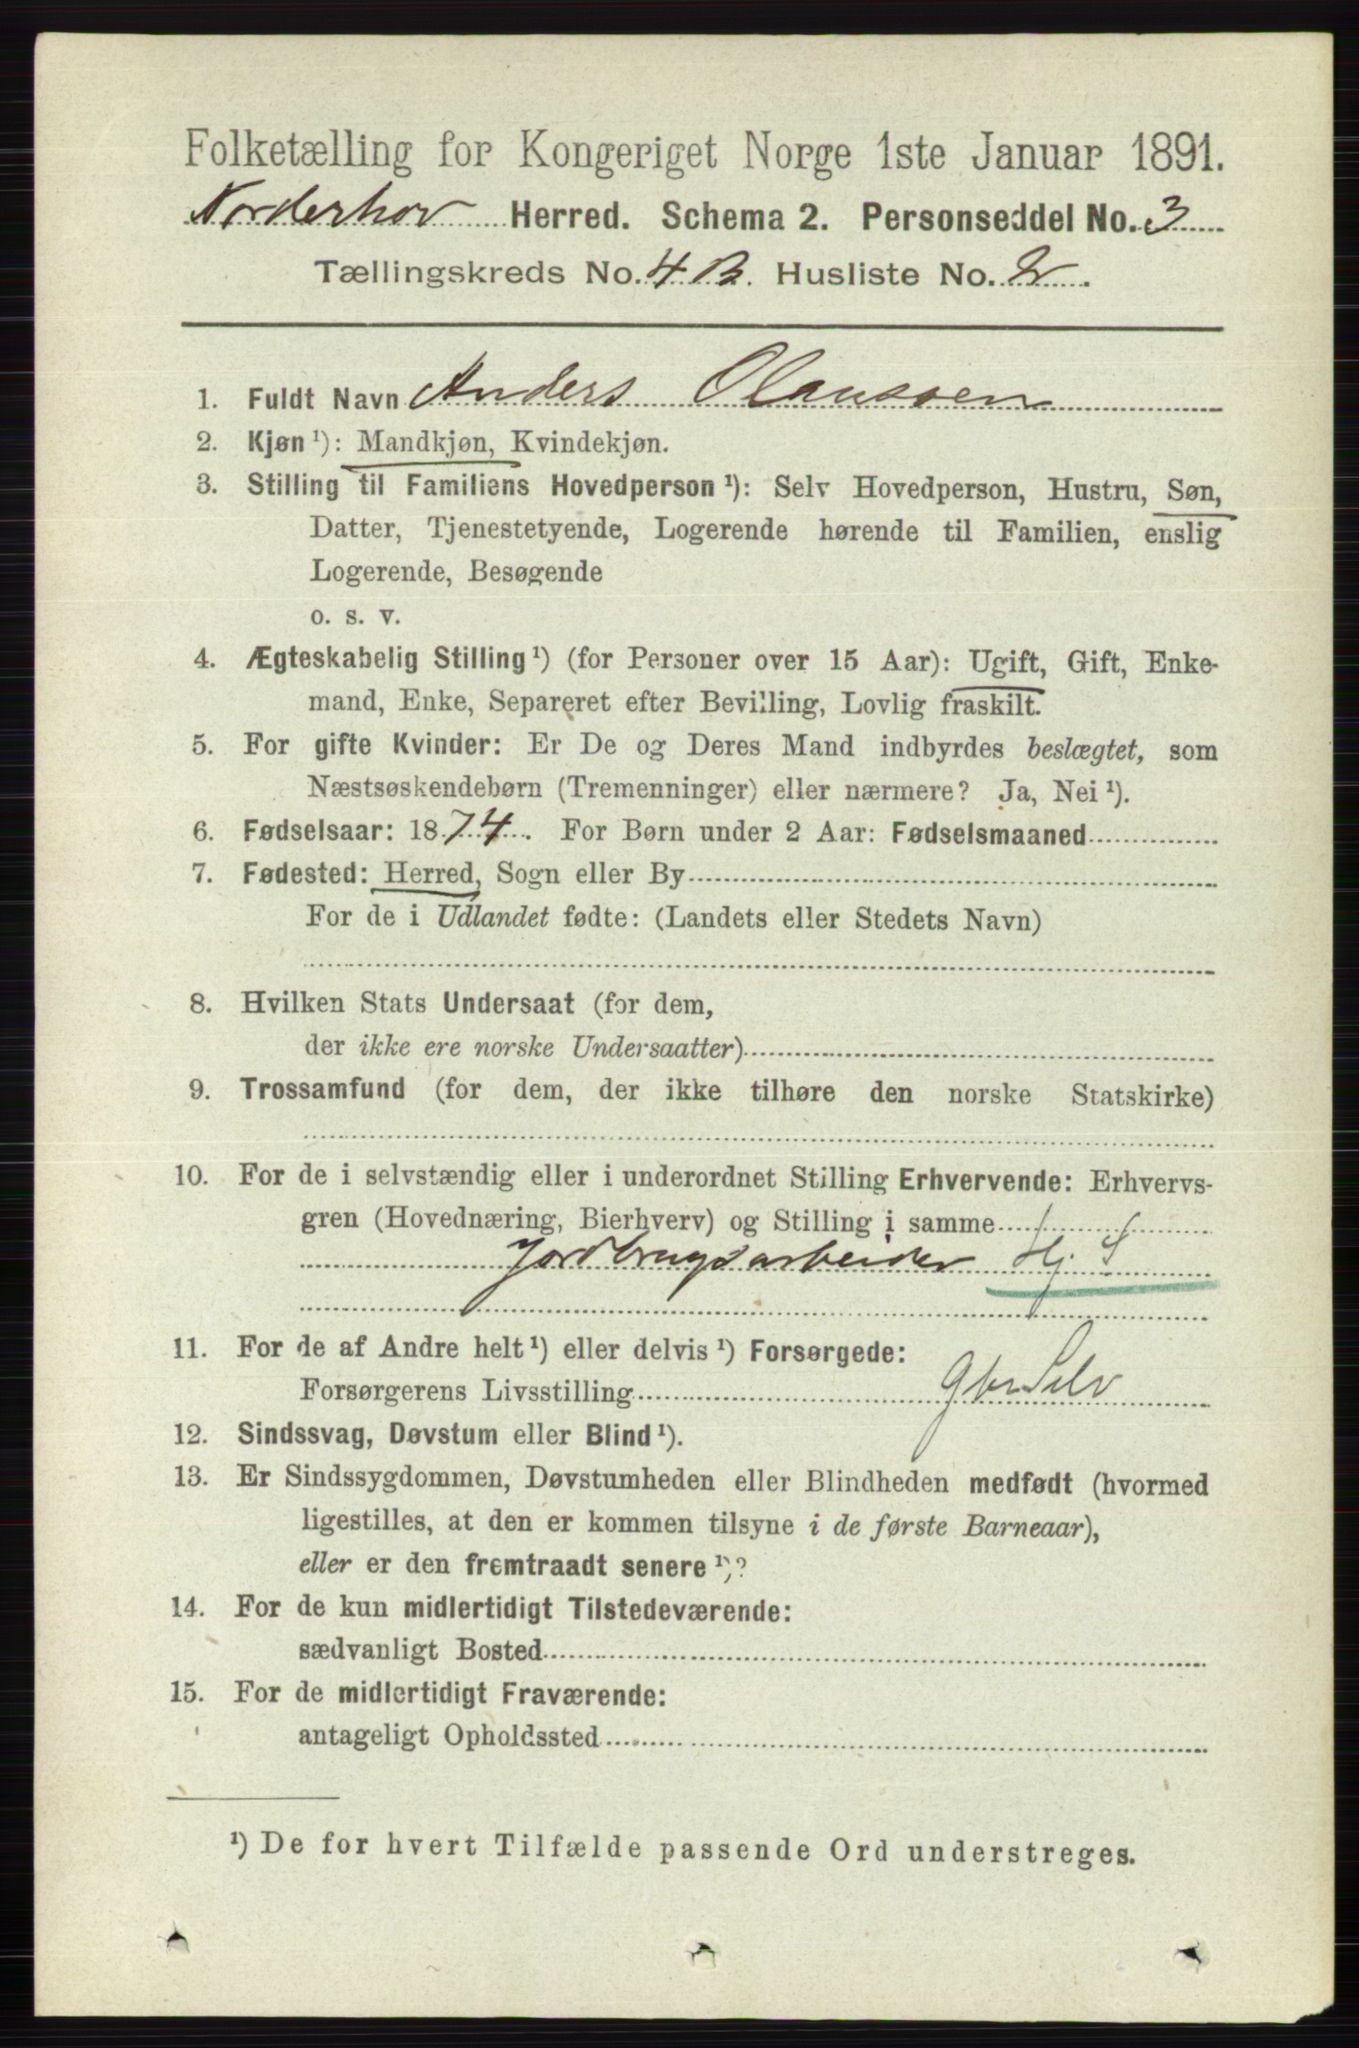 Folketælling for Kongeriget Norge 1ste Januar 1891.
Norderhov Herred. Schema 2. Personseddel No. 3
Tællingskreds No. 4 B. Husliste No. 2.
1. Fuldt Navn Anders Olaussen
2. Kjøn ¹): Mandkjøn, Kvindekjøn.
3. Stilling til Familiens Hovedperson ¹): Selv Hovedperson, Hustru, Søn,
Datter, Tjenestetyende, Logerende hørende til Familien, enslig
Logerende, Besøgende
o. s. v.
4. Ægteskabelig Stilling ¹) (for Personer over 15 Aar): Ugift, Gift, Enke-
mand, Enke, Separeret efter Bevilling, Lovlig fraskilt.
5. For gifte Kvinder: Er De og Deres Mand indbyrdes beslægtet, som
Næstsøskendebørn (Tremenninger) eller nærmere? Ja, Nei ¹).
6. Fødselsaar: 1874. For Børn under 2 Aar: Fødselsmaaned
7. Fødested: Herred, Sogn eller By
For de i Udlandet fødte: (Landets eller Stedets Navn)
8. Hvilken Stats Undersaat (for dem,
der ikke ere norske Undersaatter)
9. Trossamfund (for dem, der ikke tilhøre den norske Statskirke)
10. For de i selvstændig eller i underordnet Stilling Erhvervende: Erhvervs-
gren (Hovednæring, Bierhverv) og Stilling i samme
Jordbrugsarbeider Hj. S
11. For de af Andre helt ¹) eller delvis ¹) Forsørgede:
Forsørgerens Livsstilling Gbr Selv
12. Sindssvag, Døvstum eller Blind ¹).
13. Er Sindssygdommen, Døvstumheden eller Blindheden medfødt (hvormed
ligestilles, at den er kommen tilsyne i de første Barneaar),
eller er den fremtraadt senere ¹)?
14. For de kun midlertidigt Tilstedeværende:
sædvanligt Bosted
15. For de midlertidigt Fraværende:
antageligt Opholdssted
¹) De for hvert Tilfælde passende Ord understreges.